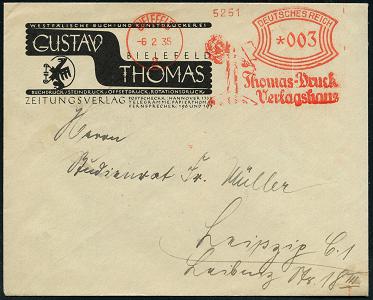 WESTFÄLISCHE BUCH- UND KUNSTDRUCKEREI
GUSTAV
BIELEFELD
THOMAS
BUCHDRUCK / STEINDRUCK / OFFSETDRUCK / ROTATIONSDRUCK
ZEITUNGSVERLAG
POSTSCHECK: HANNOVER
TELEGRAMME: PAPIERTHOMAS
FERNSPRECHER: 196 UND 197
BIELEFELD
-6.2.35
5251
DEUTSCHES REICH
*003
Thomas-Druck
Verlagshaus
Herrn
Studienrat Fr. Müller
Leipzig C.1
Leibniz Str. 18 III